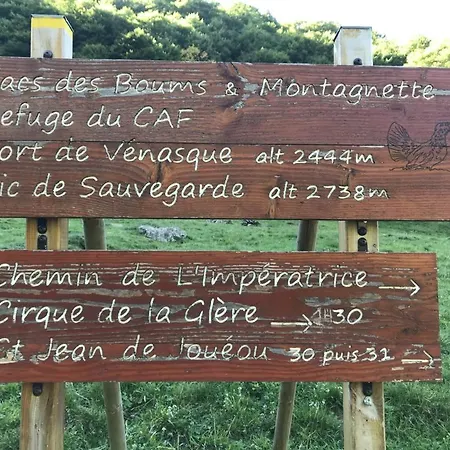 acs des Boums & Montagnette
efuge du CAF
ort de Vénasque alt 2444m
ic de Sauvegarde alt 2738m
Chemin de L'Impératrice →
Cirque de la Glère → 1H30
St Jean de Jouéou 30 puis 31 →